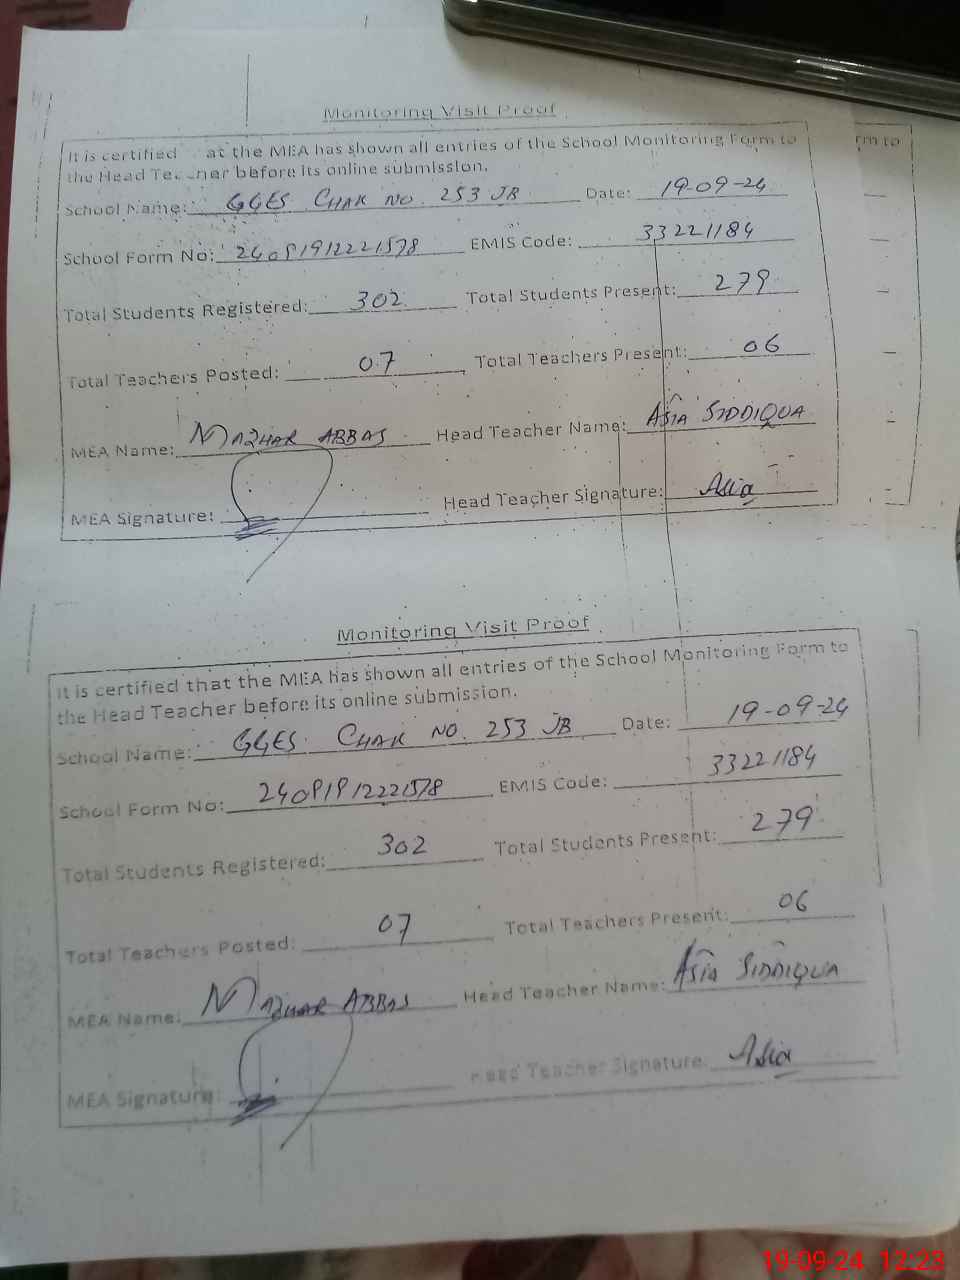 Monitoring Visit Proof
It is certified at the MEA has shown all entries of the School Monitoring Form to
the Head Teacher before its online submission.
School Name: GGES CHAK NO. 253 JB Date: 19-09-24
School Form No: 24091912221578 EMIS Code: 33221184
Total Students Registered: 302 Total Students Present: 279
Total Teachers Posted: 07 Total Teachers Present: 06
MEA Name: MAZHAR ABBAS Head Teacher Name: ASIA SIDDIQUA
MEA Signature: Head Teacher Signature: Asia
rm to
Monitoring Visit Proof
It is certified that the MEA has shown all entries of the School Monitoring Form to
the Head Teacher before its online submission.
School Name: GGES. CHAK NO. 253 JB Date: 19-09-24
School Form No: 24091912221578 EMIS Code: 33221184
Total Students Registered: 302 Total Students Present: 279
Total Teachers Posted: 07 Total Teachers Present: 06
MEA Name: MAZHAR ABBAS Head Teacher Name: ASIA SIDDIQUA
MEA Signature: Head Teacher Signature: Asia
19-09-24 12:23